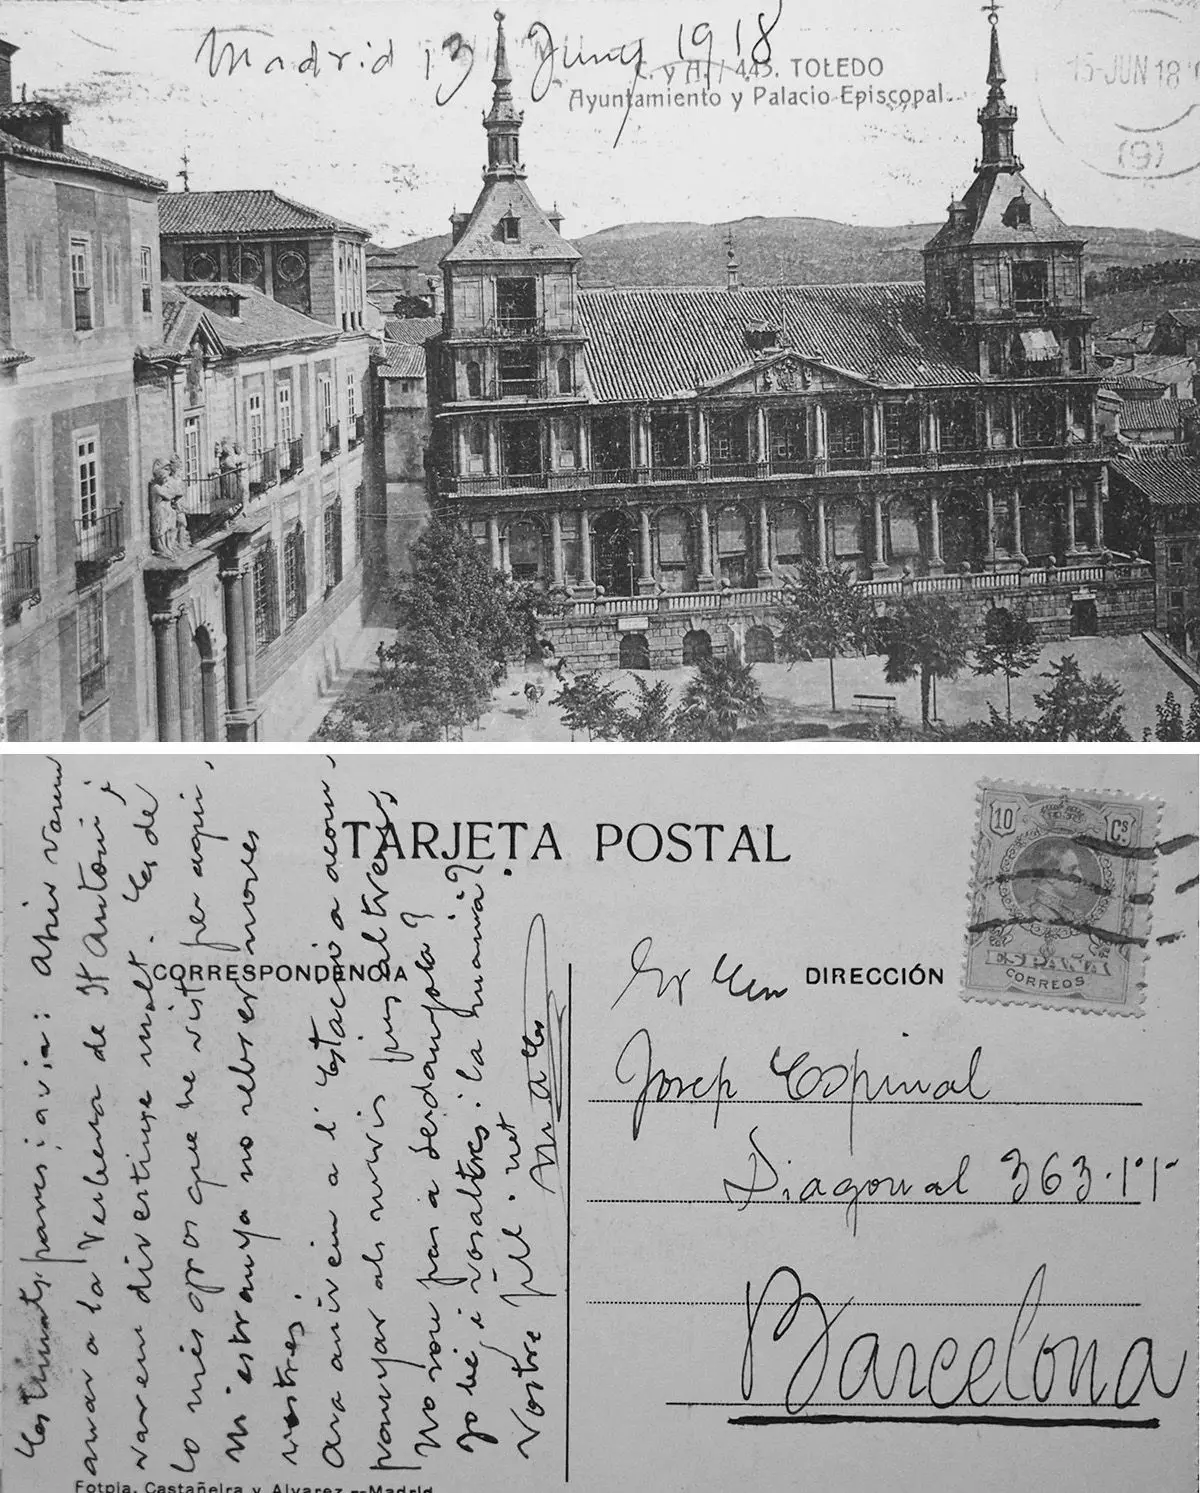 Madrid 13 Juny 1918
C. y A. 445. TOLEDO
Ayuntamiento y Palacio Episcopal.
15-JUN 18
(9)
TARJETA POSTAL
CORRESPONDENCIA
DIRECCIÓN
10 Cs
ESPAÑA
CORREOS
Estimats pares i avia: Ahir varem
anar a la Verbena de St Antoni i
varem divertirnos molt. Es de
lo més gros que he vist per aqui,
M'estranya no rebrer noves
vostres.
Ara anirem a l'Estació a acom,
panyar als nuvis pus altres
No sou pas a Serdanyola?
Jo bé, i vosaltres i la mamá?
Vostre fill i net
Sr En
Josep Espinal
Diagonal 363-1º1ª
Barcelona
Fotpia. Castañeira y Alvarez.--Madrid